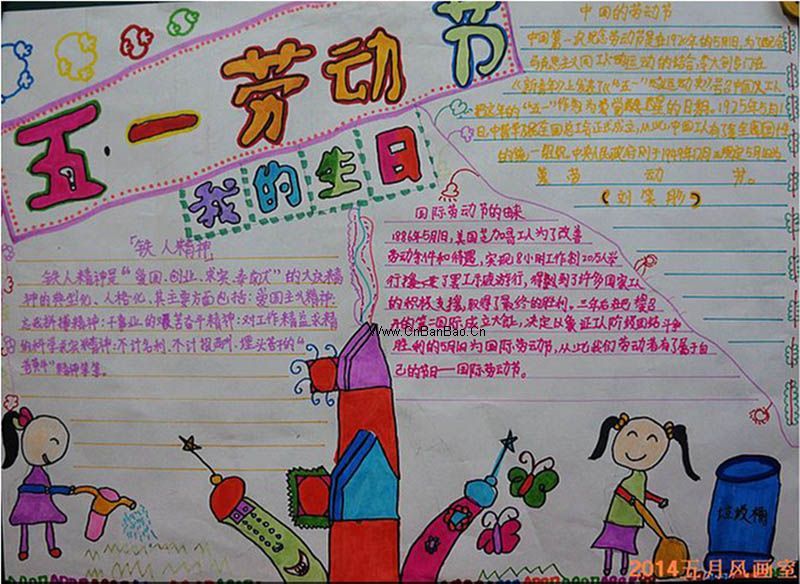 五·一劳动节
我的生日
中国的劳动节
中国第一次纪念劳动节是在1920年的5月1日,为了配合
马克思主义同工人运动的结合,李大钊专门在
《新青年》上发表了《“五一”运动史》
把这年的“五一”作为
的日期。1925年5月1
日,中华全国总工会正式成立,从此,中国工人有了全国
的统一组织。中央人民政府
劳动节。
「铁人精神」
铁人精神是“爱国、创业、求实、奉献”的大庆精
神的典型化、人格化,其主要方面包括:爱国主义精神;
忘我拼搏精神;干事业的艰苦奋斗精神;对工作精益求精
的科学求实精神;不计名利,不计报酬,埋头苦干的“
精神等等。
国际劳动节的由来
1886年5月1日,美国芝加哥工人为了改善
劳动条件和待遇,实现8小时工作制20万人举
行罢工示威游行,得到到了许多国家工人
的积极支援,取得了最终的胜利。三年后
的第二国际成立大会,决定以象征工人阶级团结斗争
胜利的5月1日为国际劳动节,从此我们劳动者有了属于自
己的节日——国际劳动节。
www.CnBanBao.Cn
垃圾桶
2014五月风画室